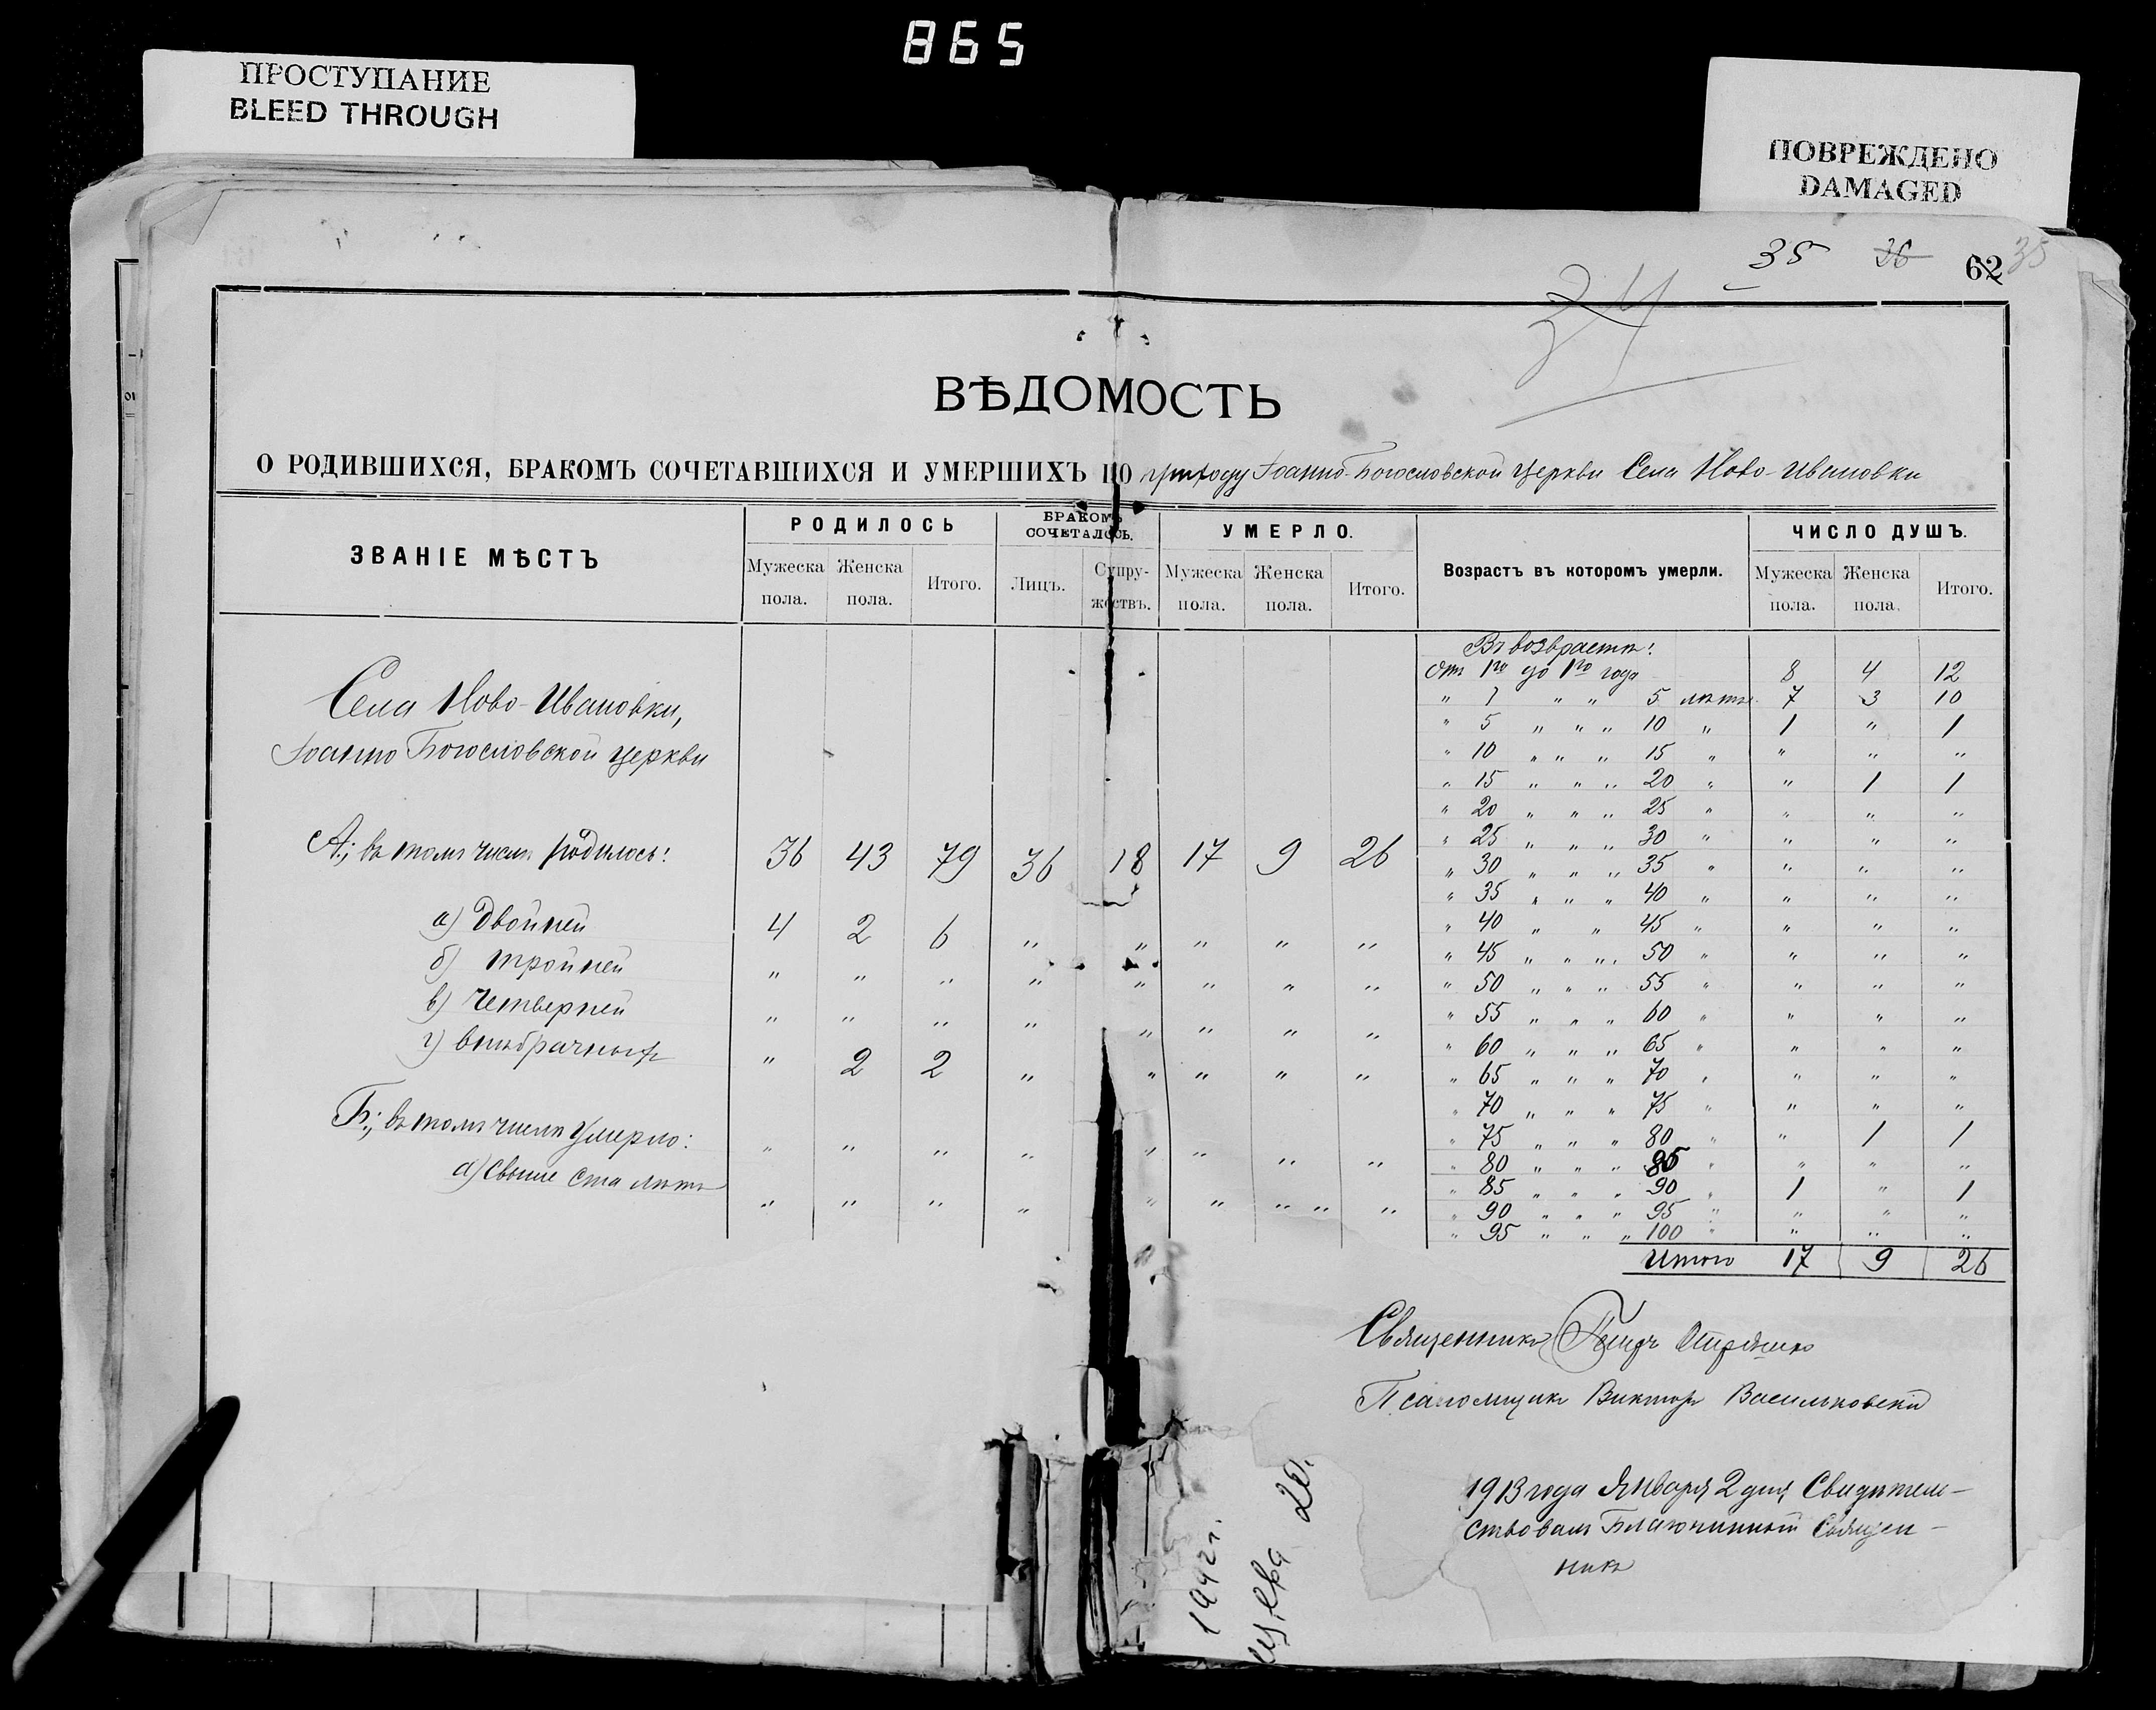 865
ПРОСТУПАНИЕ
BLEED THROUGH
ПОВРЕЖДЕНО
DAMAGED
35 36 62 35
34
ВѢДОМОСТЬ
О РОДИВШИХСЯ, БРАКОМЪ СОЧЕТАВШИХСЯ И УМЕРШИХЪ ПО приходу Іоанно-Богословской церкви Села Ново-Ивановки
ЗВАНІЕ МѢСТЪ
РОДИЛОСЬ
БРАКОМЪ СОЧЕТАЛОСЬ.
УМЕРЛО.
Возрастъ въ которомъ умерли.
ЧИСЛО ДУШЪ.
Мужеска пола. Женска пола. Итого. Лицъ. Супружествъ. Мужеска пола. Женска пола. Итого. Мужеска пола. Женска пола. Итого.
Села Ново-Ивановки,
Іоанно Богословской церкви
А; въ томъ числѣ родилось: 36 43 79 36 18 17 9 26
а) Двойней 4 2 6 " " " " "
б) тройней " " " " " " " "
в) Четверней " " " " " " " "
г) внѣбрачныхъ " 2 2 " " " " "
Б; въ томъ числѣ Умерло: " " " " " " " "
а) Свыше ста лѣтъ " " " " " " " "
Въ возврастѣ:
Отъ 1го до 1го года 8 4 12
" 1 " " 5 лѣтъ 7 3 10
" 5 " " " 10 " 1 " 1
" 10 " " " 15 " " " "
" 15 " " " 20 " " 1 1
" 20 " " " 25 " " " "
" 25 " " " 30 " " " "
" 30 " " " 35 " " " "
" 35 " " " 40 " " " "
" 40 " " 45 " " " "
" 45 " " " 50 " " " "
" 50 " " " 55 " " " "
" 55 " " " 60 " " " "
" 60 " " " 65 " " " "
" 65 " " " 70 " " " "
" 70 " " " 75 " " " "
" 75 " " " 80 " " 1 1
" 80 " " " 85 " " " "
" 85 " " " 90 " 1 " 1
" 90 " " " 95 " " " "
" 95 " " " 100 " " " "
Итого 17 9 26
Священникъ
Псаломщикъ Викторъ Васильковскій
1913 года Января 2 дня Свидѣтель-
ствовалъ Благочинный Священ-
никъ
1942 г.
20.